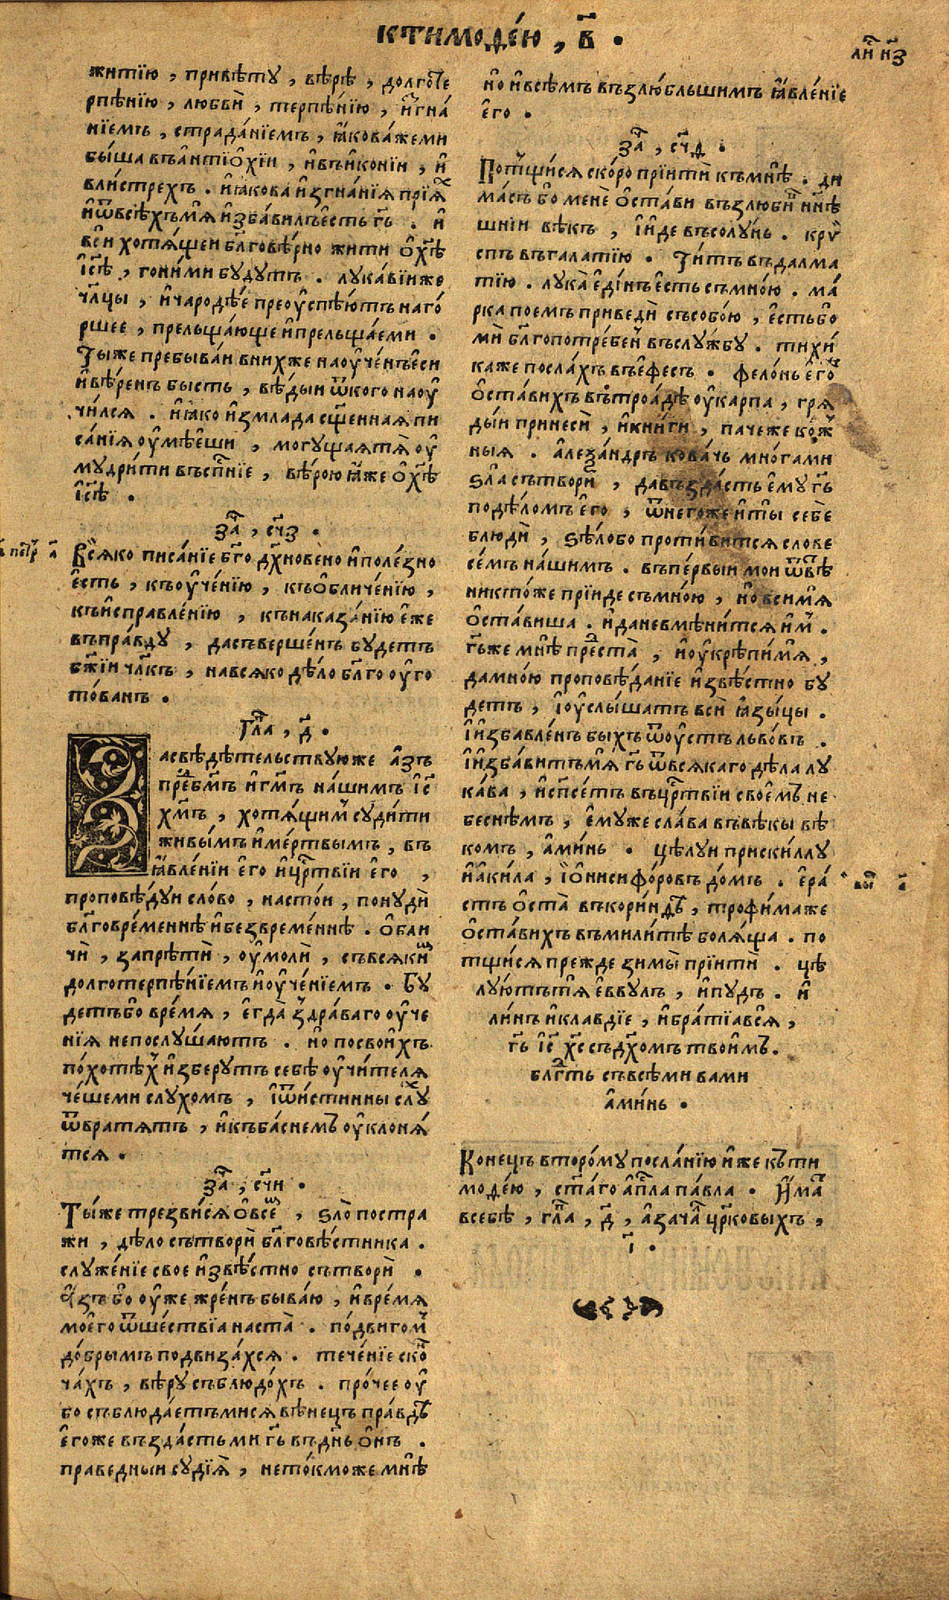 ктимоѳе́ю , в҃ .
житїю , привѣту , вѣрѣ , долготе
рпѣнїю , любвѝ , терпѣнїю , и҆згна́
нїемъ , страда́нїемъ , ꙗ҆кова́жеми
бы́ша въа҆нтїѻхі́и , и҆въи҆коні́и , и҆
вли́стрехъ . и҆ꙗ҆кова и҆згна́нїѧ прїѧ́х
и҆ѿвсѣ́хъмѧ и҆зба́вилъесть гь҃ . и҆
вси хотѧ́щеи бл҃гове́рно жити ѻ҆хѣ҃
і҆сѣ҃ , гони́ми бу́дутъ . лука́вїиже
чл҃цы , и҆чародѣ́е преоуспѣ́ютъ наго́
ршее , прельща́юще и҆прельща́еми .
Ты́же пребыва́и внихже наоуче́нъе҆си
и҆вѣ́ренъ бысть , вѣ́дыи ѿкого наоу҆
чи́лсѧ . и҆ꙗ҆ко и҆змлада сщ҃еннаѧ пи
са́нїѧ оу҆мѣ́еши , могу́щаѧтѧ оу҆
мудри́ти въсп҃нїе , вѣ́рою ꙗ҆же ѻ҆хѣ҃
і҆сѣ҃ .
за҃ , сч҃з .
Всѧ́ко писа́нїе бг҃о дх҃новено и҆поле́зно
е҆сть , къоуче́нїю , къѻбличе́нїю ,
къи҆справле́нїю , кънаказа́нїю е҆же
въпра́вду , дасъверше́нъ бу́детъ
бж҃їи чл҃къ , навсѧко дѣ́ло бл҃го оу҆го
то́ванъ .
гла҃ , д҃ .
Засвѣдѣ́тельствуюже а҆зъ
пре́дбг҃мъ и҆гм҃ъ на́шимъ і҆с҃
хм҃ъ , хотѧ́щимъ суди́ти
живы́мъ и҆ме́ртвымъ , въ
ꙗ҆вле́нїи е҆го и҆црт҃вїи е҆го ,
проповѣ́дуи сло́во , насто́и , пону́ди
бл҃говре́меннѣ и҆безвре́меннѣ . ѻ҆бли
чѝ , запрѣтѝ , оу҆молѝ , съвсѧ́ки́м
долготерпѣ́нїемъ и҆оуче́нїемъ . Бу́
детъбо вре́мѧ , е҆гда̀ здра́ваго оу҆че
нїѧ непослу́шаютъ . но посвои҆хъ
по́хотѣх и҆зберу́тъ себѣ̀ оу҆чи́телѧ
че́шеми слу́хомъ , і҆ѿи́стинны слу́х
ѿвратѧ́тъ , и҆къба́снемъ оу҆клонѧ́
тсѧ .
за҃ , сч҃и .
Ты́же трезви́сѧ ѻ҆все́м , ѕло постра
жи , дѣ́ло сътворѝ бл҃говѣ́стника .
служе́нїе свое и҆звѣ́стно сътворѝ .
А҆зъ бо оу҆же жре́нъ быва́ю , и҆вре́мѧ
моего̀ ѿше́ствїа наста̀ . по́двигом
до́брымъ подвиза́хсѧ . тече́нїе ско́н
ча́хъ , вѣ́ру съблюдо́хъ . про́чее оу҆
бо съблюда́етъмисѧ вѣне́цъ пра́вды
е҆го́же възда́стьми гь҃ въдн҃ь ѻ҆нъ .
праведныи судїѧ̀ , нето́кможе мнѣ̀
но и҆всѣ́мъ възлю́бльшимъ ꙗ҆вле́нїе
е҆го .
за҃ , сч҃д .
Потщи́сѧ ско́ро прїитѝ къмнѣ̀ . ди
ма́съ бо менѐ ѻ҆ста́ви възлюби́в ны́нѣ
шнїи вѣкъ , і҆и҆де въсолу́нь . кри
спъ въгала́тїю . Ти́тъ въдалма
ті́ю . лука̀ е҆ди́нъе҆сть съмно́ю . ма́
рка пое́мъ приведѝ съсобо́ю , е҆стьбо
мѝ бл҃гопотре́бен въслу́жбу . тихи́
каже посла́хъ въе҆фе́съ . фело́нь е҆го́ж
ѻ҆ста́вихъ въ́троа́дѣ оу҆ка́рпа , грѧ
ды́и принесѝ , и҆кни́ги , па́чеже ко́ж
ныѧ . а҆леѯа́ндръ кова́чь мно́гами
ѕла̀ сътворѝ , давъзда́сть е҆му̀ гь҃
подѣло́мъ е҆го , ѿнего́же и҆ты себѐ
блюдѝ , ѕѣло́бо проти́витсѧ слове
се́мъ на́шимъ . въпе́рвыи мои ѿвѣ́
никто́же прїиде съмно́ю , но всимѧ
ѻ҆ста́виша . и҆ даневмѣни́тсѧ и҆м .
гь҃же мнѣ̀ предста̀ , и҆оукрѣпи́мѧ ,
дамно́ю проповѣ́данїе и҆звѣ́стно бу́
детъ , і҆оуслы́шатъ всѝ ꙗ҆зы́цы .
і҆и҆збавле́нъ быхъ ѿоу҆стъ льво́въ .
і҆и҆зба́витъмѧ гь҃ ѿвсѧ́каго дѣ́ла лу
ка́ва , и҆сп҃се́тъ въцр҃твїи своемъ не
бе́снѣмъ , е҆муже сла́ва въвѣ́ки вѣ
комъ , а҆ми́нь . цѣлу́и приски́ллу
и҆а҆ки́ла , і҆ѻниси́форовъ до́мъ . е҆ра́
стъ ѻ҆ста̀ въкори́нѳѣ , трофи́маже
ѻ҆ста́вихъ въмили́тѣ болѧ́ща . по
тщи́сѧ пре́жде зимы̀ прїитѝ . цѣ
лу́ютътѧ е҆вву́лъ , и҆пу́дъ . и҆
ли́нъ и҆кла́вдїе , и҆бра́тїавсѧ̀ ,
гь҃ і҆с҃ хс҃ съдх҃омъ твои́мъ .
блг҃ть съвсѣ́ми вами
а҆ми́нь .
Коне́цъ второ́му посла́нїю и҆же къти
моѳе́ю , ст҃а́го а҆пл҃а па́вла . И҆ма
всебѣ̀ , гла҃ , д҃ , а҆зача҃ цр҃ковыхъ ,
і҃ .